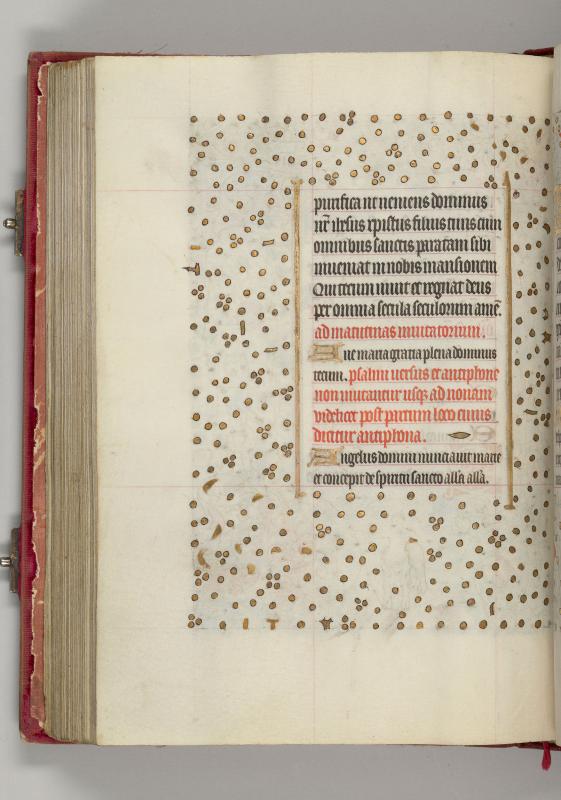 purifica ut veniens dominus
nr̄ ihesus xpistus filius tuus cum
omnibus sanctis paratam sibi
inueniat in nobis mansionem
Qui tecum viuit et regnat deus
per omnia secula seculorum amē.
ad matutinas inuitatorium.
Aue maria gratia plena dominus
tecum. psalmi uersus et antiphone
non mutantur usqȝ ad nonam
videlicet post partum loco cuius
dicitur antiphona.
Angelus domini nunciauit marie
et concepit de spiritu sancto allā allā.